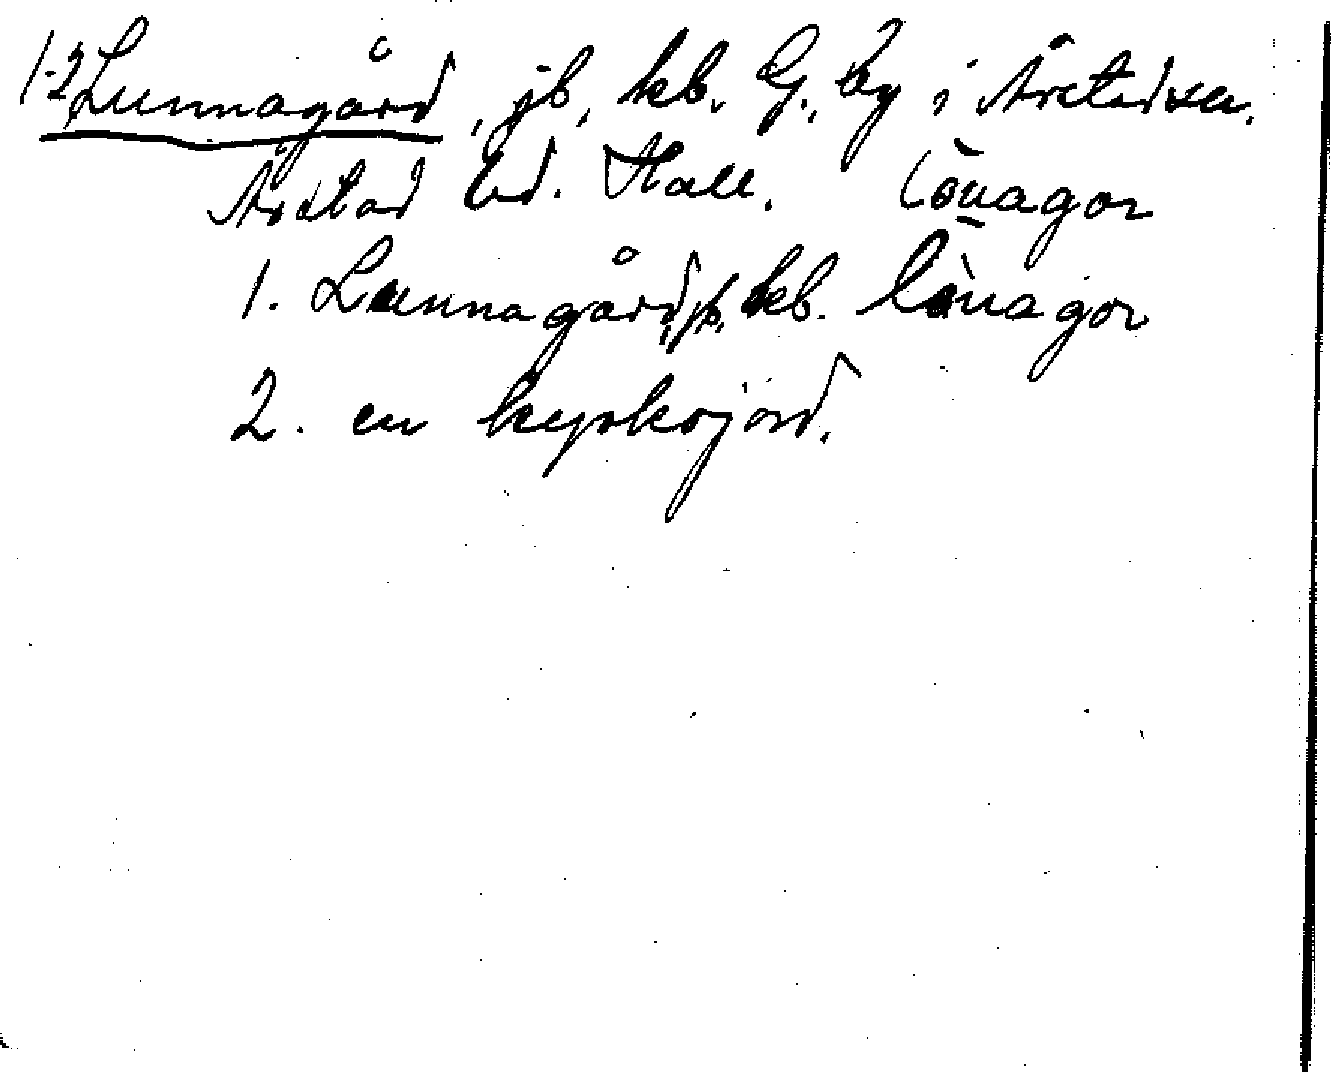 1-2 Lunnagård, jb, kb. G. By i Årstad sn.
Årstad hd. Hall. lönagor
1. Lunnagård, jb, kb. lònagor
2. en kyrkojord.